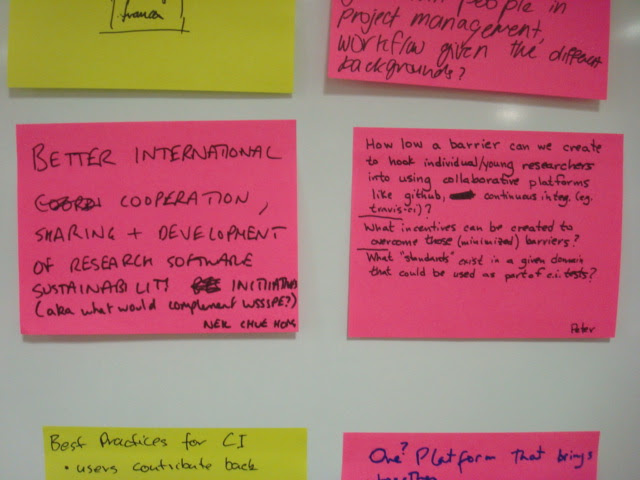 people in
project management,
workflow given the different
backgrounds?
BETTER INTERNATIONAL
COOPERATION,
SHARING + DEVELOPMENT
OF RESEARCH SOFTWARE
SUSTAINABILITY INITIATIVES
(aka what would complement WSSSPE?)
NEIL CHUE HONG
How low a barrier can we create
to hook individual/young researchers
into using collaborative platforms
like github, continuous integ. (eg.
travis-ci)?
What incentives can be created to
overcome those (minimized) barriers?
What "standards" exist in a given domain
that could be used as part of c.i. tests?
Peter
Best Practices for CI
• users contribute back
One? Platform that brings
together